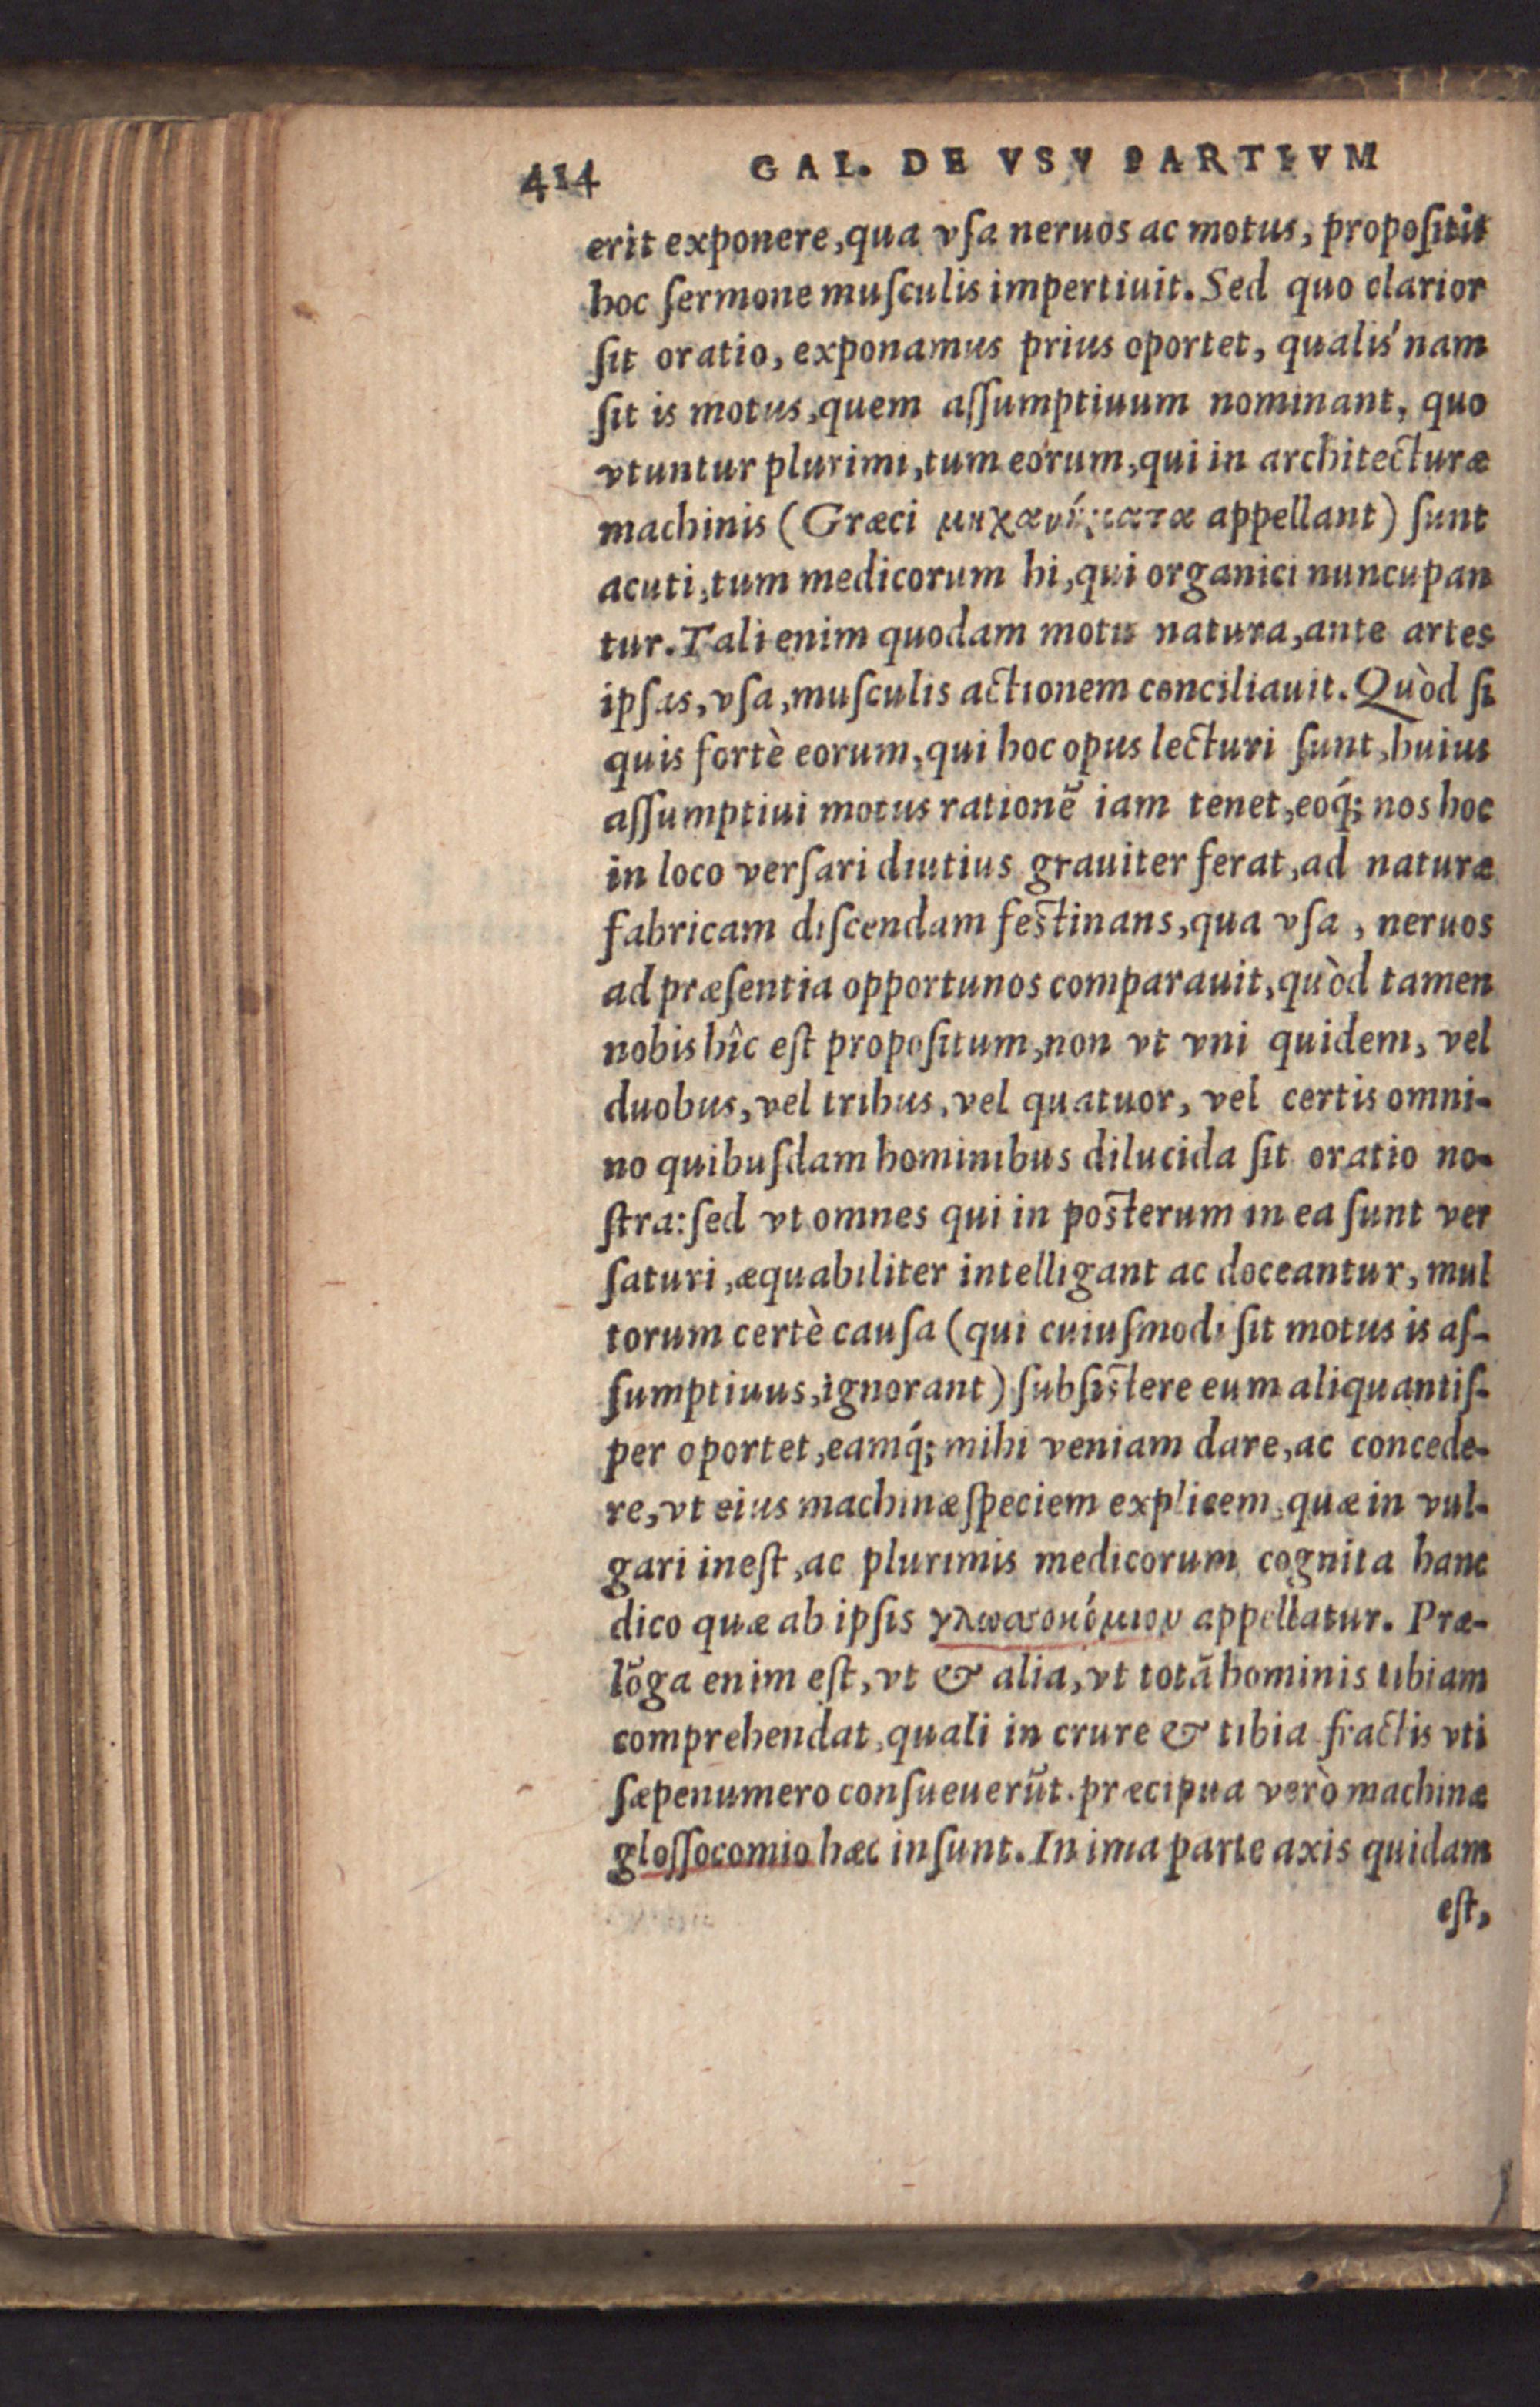 414 GAL. DE VSV PARTIVM
erit exponere, qua vſa neruos ac motus, propoſitis
hoc ſermone muſculis impertiuit. Sed quo clarior
ſit oratio, exponamus prius oportet, qualis'nam
ſit is motus, quem aſſumptiuum nominant, quo
vtuntur plurimi, tum eorum, qui in architecturæ
machinis (Græci μηχανήματα appellant) ſunt
acuti, tum medicorum hi, qui organici nuncupan
tur. Tali enim quodam motu natura, ante artes
ipſas, vſa, muſculis actionem conciliauit. Quòd ſi
quis fortè eorum, qui hoc opus lecturi ſunt, huius
aſſumptiui motus rationẽ iam tenet, eoq́; nos hoc
in loco verſari diutius grauiter ferat, ad naturæ
fabricam diſcendam feſtinans, qua vſa, neruos
ad præſentia opportunos comparauit, quòd tamen
nobis hîc eſt propoſitum, non vt vni quidem, vel
duobus, vel tribus, vel quatuor, vel certis omni-
no quibuſdam hominibus dilucida ſit oratio no-
ſtra: ſed vt omnes qui in poſterum in ea ſunt ver
ſaturi, æquabiliter intelligant ac doceantur, mul
torum certè cauſa (qui cuiuſmodi ſit motus is aſ-
ſumptiuus, ignorant) ſubſiſtere eum aliquantiſ-
per oportet, eamq́; mihi veniam dare, ac concede-
re, vt eius machinæ ſpeciem explicem, quæ in vul-
gari ineſt, ac plurimis medicorum cognita hanc
dico quæ ab ipſis γλωσσοκόμιον appellatur. Præ-
lõga enim eſt, vt & alia, vt totã hominis tibiam
comprehendat, quali in crure & tibia fractis vti
ſæpenumero conſueuerũt. præcipua verò machinæ
gloſſocomio hæc inſunt. In ima parte axis quidam
eſt,